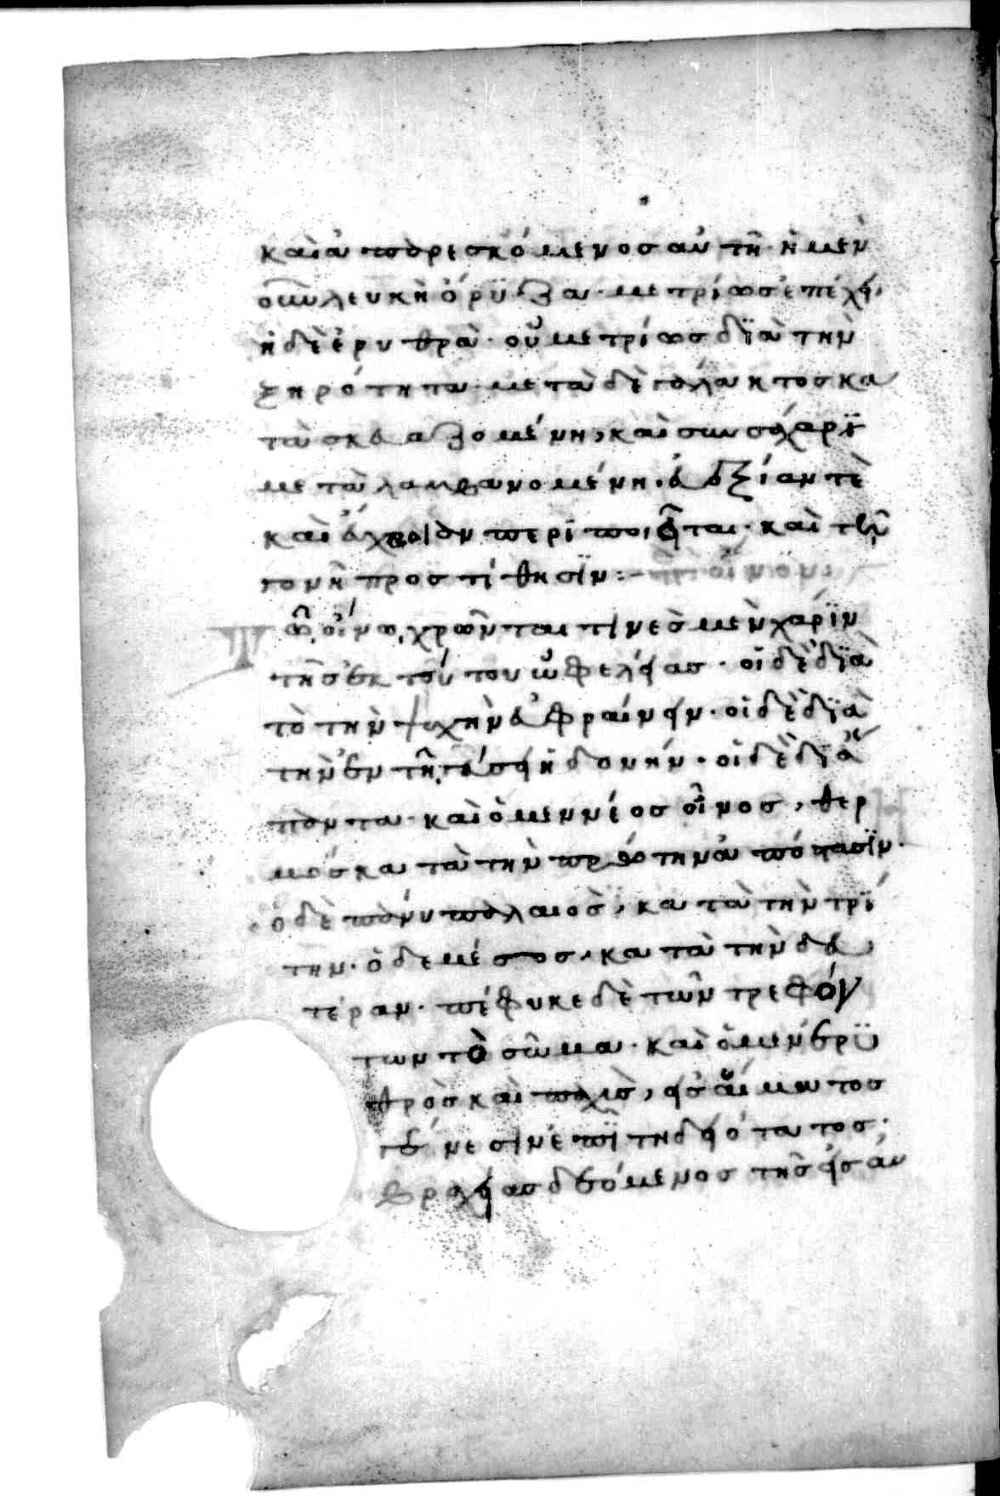 καὶ ἀπαρεσκόμενος αὐτῆ· ἡ μὲν
οὖν λευκὴ ὀρύζα· μετρίως ἐπέχει,
ἡ δὲ ἐρυθρὰ· οὐ μετρίως δϊὰ τὴν
ξηρότητα· μετὰ δὲ γάλακτος κα
τασκευαζομένη, καὶ σὺν σάχαρϊ
μεταλαμβανομένη. εὐεξίαν τὲ
καὶ εὔχροιαν περιποιεῖται· καὶ τῆ
γονῆ προστίθησϊν:- περὶ οἴνου:
Τῶ οἴνω, χρῶνται τινὲς μὲν χάρϊν
τῆς ἐκ τούτου ὠφελείας· οἱ δὲ δϊὰ
τὸ τὴν ψυχὴν εὐφραίνειν· οἱ δὲ δϊὰ
τὴν ἐν τῆ γεύσει ἡδονήν· οἱ δὲ δϊὰ
πάντα· καὶ ὁ μεν νέος οἶνος, θερ
μὸς κατὰ τὴν πρώτην ἀπόστασϊν·
ὁ δὲ πάνυ παλαιὸς, κατὰ τὴν τρί
την· ὁ δε μέσος, κατὰ τὴν δευ
τέραν· πέφυκε δὲ τῶν τρεφόν
των τὸ σῶμα· καὶ ὁ μὲν ἐρυ
θρὸς καὶ παχὺς, εἰς αἵματος
γένεσιν ἐπϊτηδειότατος·
βραχείας δεόμενος τῆς εἰς αἷ